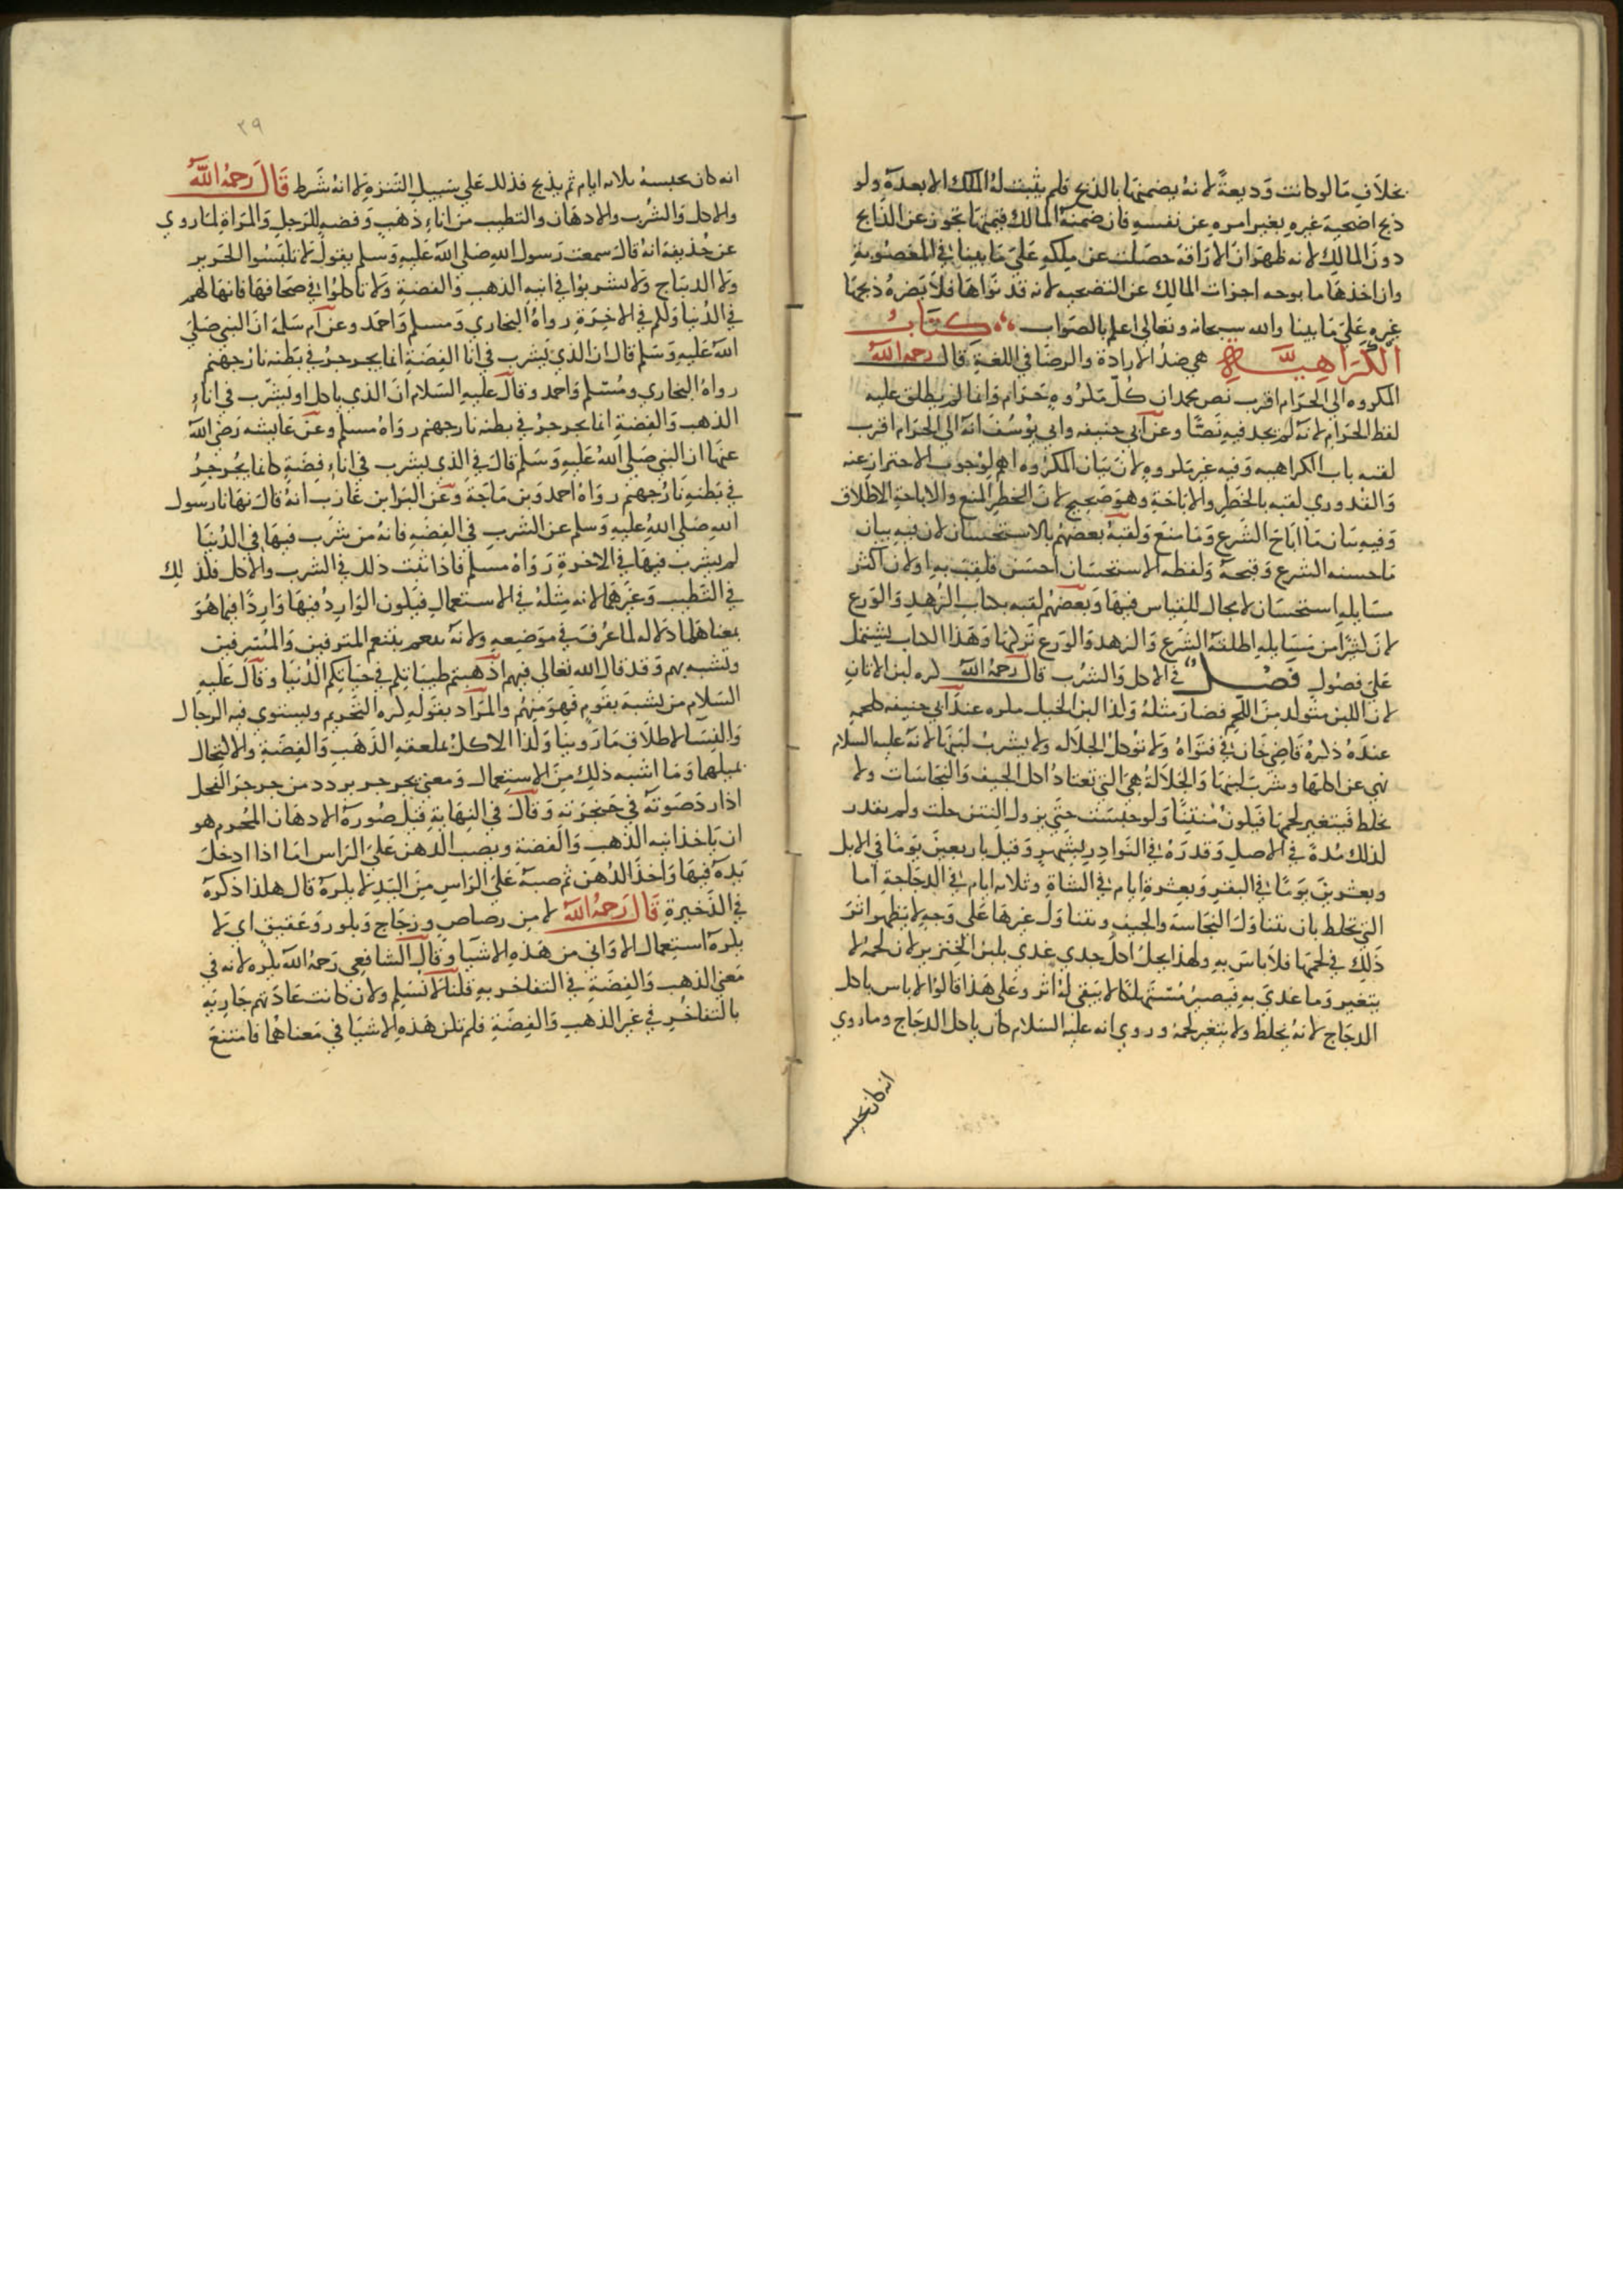 بخلاف ما لو كانت وديعة لانه يضمنها بالذبح فلم يثبت له الملك الا بعده ولو
ذبح اضحية غيره بغير امره عن نفسه فان ضمنه المالك قيمتها تجوز عن الذابح
دون المالك لانه ظهر ان الاراقة حصلت عن ملكه على ما بينا في المغصوبة
وان اخذها مذبوحه اجزات المالك عن التضحيه لانه قد نواها فلا يضره ذبحها
غيره على ما بينا والله سبحانه وتعالى اعلم بالصواب كتاب
الكراهية هي ضد الارادة والرضا في اللغة قال رحمه الله
المكروه الى الحرام اقرب نص محمد ان كل مكروه حرام وانما لم يطلق عليه
لفظ الحرام لانه لم يجد فيه نصا وعن ابي حنيفه وابي يوسف انه الى الحرام اقرب
لقبه باب الكراهيه وفيه غير مكروه لان بيان المكروه اهم لوجوب الاحتراز عنه
والقدوري لقبه بالحظر والاباحة وهو صحيح لان الحظر المنع والاباحة الاطلاق
وفيه بيان ما اباح الشرع وما منع ولقبه بعضهم بالاستحسان لان فيه بيان
ما حسنه الشرع وقبحه ولفظه الاستحسان احسن فلقب به او لان اكثر
مسايله استحسان لا مجال للقياس فيها وبعضهم لقبه بكتاب الزهد والورع
لان كثيرا من مسايله اطلقه الشرع والزهد والورع تركها وهذا الكتاب يشتمل
على فصول فصل في الاكل والشرب قال رحمه الله كره لبن الاتان
لان اللبن متولد من اللحم فصار مثله وكذا لبن الخيل مكروه عند ابي حنيفه كلحمه
عنده ذكره قاضي خان في فتواه ولا توكل الجلاله ولا يشرب لبنها لانه عليه السلام
نهى عن اكلها وشرب لبنها والجلالة هي التي تعتاد اكل الجيف والنجاسات ولا
تخلط فيتغير لحمها فيكون منتنا ولو حبست حتى يزول النتن حلت ولم يقدر
لذلك مدة في الاصل وقدره في النوادر بشهر وقيل باربعين يوما في الابل
وبعشرين يوما في البقر وبعشرة ايام في الشاة وثلاثه ايام في الدجاجة اما
التي تخلط بان تتناول النجاسة والجيف وتتناول غيرها على وجه لا يظهر اثر
ذلك في لحمها فلا باس به ولهذا يحل اكل جدي غذي بلبن الخنزير لان لحمه لا
يتغير وما غذي به فيصير مستهلكا لا يبقى له اثر وعلى هذا قالوا لا باس باكل
الدجاج لانه يخلط ولا يتغير لحمه وروي انه عليه السلام كان ياكل الدجاج وما روي
انه كان يحبسه
٣٩
انه كان يحبسه ثلاثه ايام ثم يذبح فذلك على سبيل التنزه لا انه شرط قال رحمه الله
والاكل والشرب والادهان والتطيب من اناء ذهب وفضه للرجل والمراة لما روي
عن حذيفة انه قال سمعت رسول الله صلى الله عليه وسلم يقول لا تلبسوا الحرير
ولا الديباج ولا تشربوا في انيه الذهب والفضة ولا تاكلوا في صحافها فانها لهم
في الدنيا ولكم في الاخرة رواه البخاري ومسلم واحمد وعن ام سلمة ان النبي صلى
الله عليه وسلم قال ان الذي يشرب في انا الفضة انما يجرجر في بطنه نار جهنم
رواه البخاري ومسلم واحمد وقال عليه السلام ان الذي ياكل او يشرب في اناء
الذهب والفضة انما يجرجر في بطنه نار جهنم رواه مسلم وعن عايشه رضي الله
عنها ان النبي صلى الله عليه وسلم قال في الذي يشرب في اناء فضة كانما يجرجر
في بطنه نار جهنم رواه احمد وبن ماجة وعن البرا بن عازب انه قال نهانا رسول
الله صلى الله عليه وسلم عن الشرب في الفضه فانه من شرب فيها في الدنيا
لم يشرب فيها في الاخرة رواه مسلم فاذا ثبت ذلك في الشرب والاكل فكذلك
في التطيب وغيرهما لانه مثله في الاستعمال فيكون الوارد فيها واردا فيما هو
بمعناهما دلاله لما عرف في موضعه ولانه تنعم بتنعم المترفين والمسرفين
وتشبه بهم وقد قال الله تعالى فيهم اذهبتم طيباتكم في حياتكم الدنيا وقال عليه
السلام من تشبه بقوم فهو منهم والمراد بقوله كره التحريم ويستوي فيه الرجال
والنسا لاطلاق ما روينا وكذا الاكل بملعقه الذهب والفضة والاكتحال
بميلهما وما اشبه ذلك من الاستعمال ومعنى يجرجر يردد من جرجر الفحل
اذا ردد صوته في حنجرته وقال في النهاية قيل صورة الادهان المحرم هو
ان ياخذ انيه الذهب والفضة ويصب الدهن على الراس اما اذا ادخل
يده فيها واخذ الدهن ثم صبه على الراس من اليد لا يكره قال هكذا ذكره
في الذخيرة قال رحمه الله لا من رصاص وزجاج وبلور وعقيق اي لا
يكره استعمال الاواني من هذه الاشيا وقال الشافعي رحمه الله يكره لانه في
معنى الذهب والفضة في التفاخر به قلنا لا نسلم ولان كانت عادتهم جارية
بالتفاخر في غير الذهب والفضة فلم تكن هذه الاشيا في معناهما فامتنع